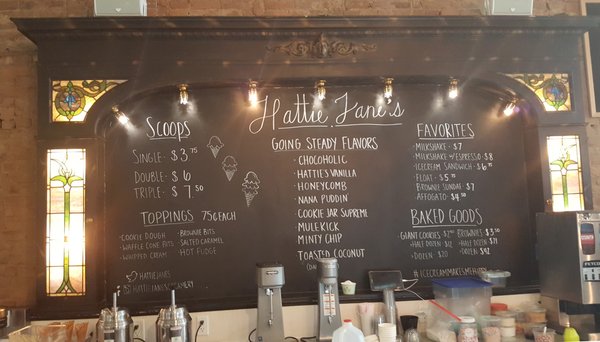 Hattie Jane's
SCOOPS
SINGLE · $3.75
DOUBLE · $6
TRIPLE · $7.50
TOPPINGS 75¢ EACH
· COOKIE DOUGH
· WAFFLE CONE BITS
· WHIPPED CREAM
· BROWNIE BITS
· SALTED CARAMEL
· HOT FUDGE
GOING STEADY FLAVORS
· CHOCOHOLIC
· HATTIE'S VANILLA
· HONEYCOMB
· NANA PUDDIN
· COOKIE JAR SUPREME
· MULEKICK
· MINTY CHIP
· TOASTED COCONUT
FAVORITES
· MILKSHAKE · $7
· MILKSHAKE W/ ESPRESSO · $8
· ICECREAM SANDWICH · $6.75
· FLOAT · $5.75
BROWNIE SUNDAE · $7
· AFFOGATO · $4.50
BAKED GOODS
· GIANT COOKIES
· HALF DOZEN
· DOZEN
BROWNIES · $3.50
· HALF DOZEN
· DOZEN